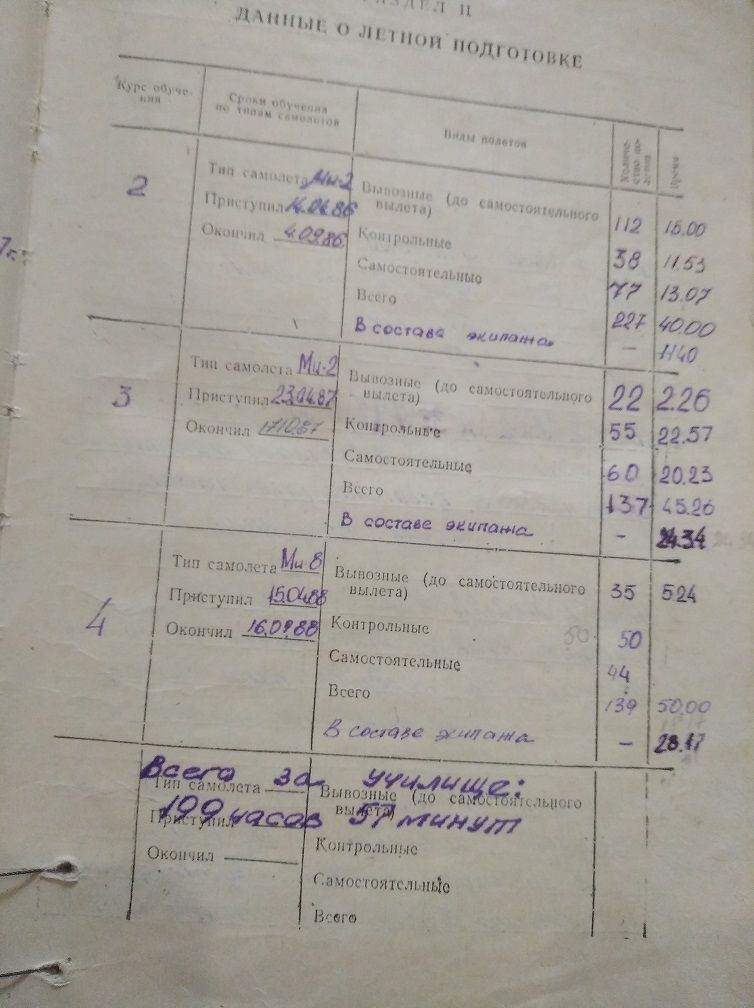 РАЗДЕЛ II
ДАННЫЕ О ЛЕТНОЙ ПОДГОТОВКЕ
Курс обуче-
ния
Сроки обучения
по типам самолетов
Виды полетов
Количе-
ство по-
летов
Время
2
Тип самолета Ми-2
Приступил 14.04.86
Окончил 4.09.86
Вывозные (до самостоятельного
вылета) 112 15.00
Контрольные 38 11.53
Самостоятельные 77 13.07
Всего 227 40.00
В состава экипажа – 11.40
3
Тип самолета Ми-2
Приступил 23.04.87
Окончил 17.10.87
Вывозные (до самостоятельного
вылета) 22 2.26
Контрольные 55 22.57
Самостоятельные 60 20.23
Всего 137 45.26
В составе экипажа – 24.34
4
Тип самолета Ми-8
Приступил 15.04.88
Окончил 16.09.88
Вывозные (до самостоятельного
вылета) 35 5.24
Контрольные 50 50
Самостоятельные 44
Всего 139 50.00
В составе экипажа – 28.17
Всего за училище:
199 часов 57 минут
Тип самолета
Приступил
Окончил
Вывозные (до самостоятельного
вылета)
Контрольные
Самостоятельные
Всего